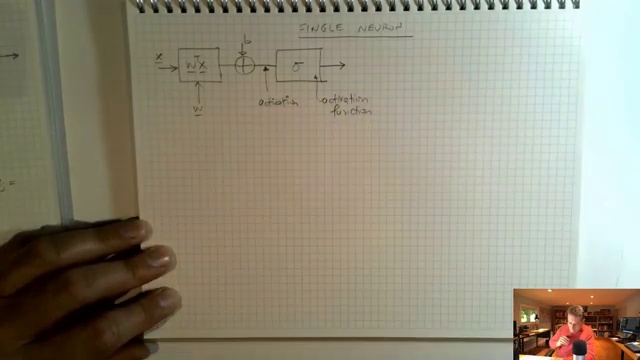 SINGLE NEURON
b
x
wᵀx
σ
w
activation
activation
function